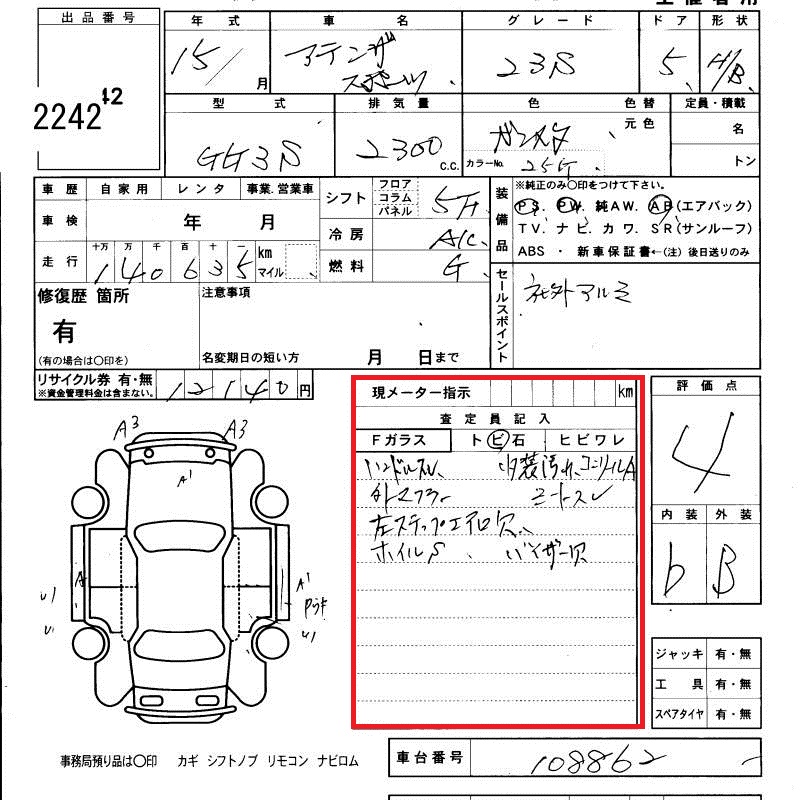 出品番号
2242
42
年式 車名 グレード ドア 形状
15/ 月 アテンザ スポーツ 23S 5 H/B
型式 排気量 色 色替 定員・積載
元色 名
GG3S 2300 C.C. ガンメタ カラーNo. 25F トン
車歴 自家用 レンタ 事業.営業車
シフト フロア コラム パネル 5F
装備品
※純正のみ〇印をつけて下さい。
PS. PW. 純AW. AB(エアバック)
TV. ナビ. カワ. SR(サンルーフ)
ABS ・ 新車保証書←(注) 後日送りのみ
車検 年 月
冷房 A/C
走行 十万 万 千 百 十 一 km マイル
140635
燃料 G
セールスポイント 社外アルミ
修復歴 箇所
有
(有の場合は〇印を)
注意事項
名変期日の短い方 月 日まで
リサイクル券 有・無
※資金管理料金は含まない。
12140円
現メーター指示 km
査定員記入
Fガラス トビ石 ヒビワレ
ハンドルスレ 内装汚れ コンソールA
外マフラー シートスレ
左ステップエアロ欠
ホイルS バイザー欠
評価点
4
内装 外装
b B
A3 A3
A1
A A1
U1 Pウキ
U1
ジャッキ 有・無
工具 有・無
スペアタイヤ 有・無
事務局預り品は〇印 カギ シフトノブ リモコン ナビロム
車台番号 108862